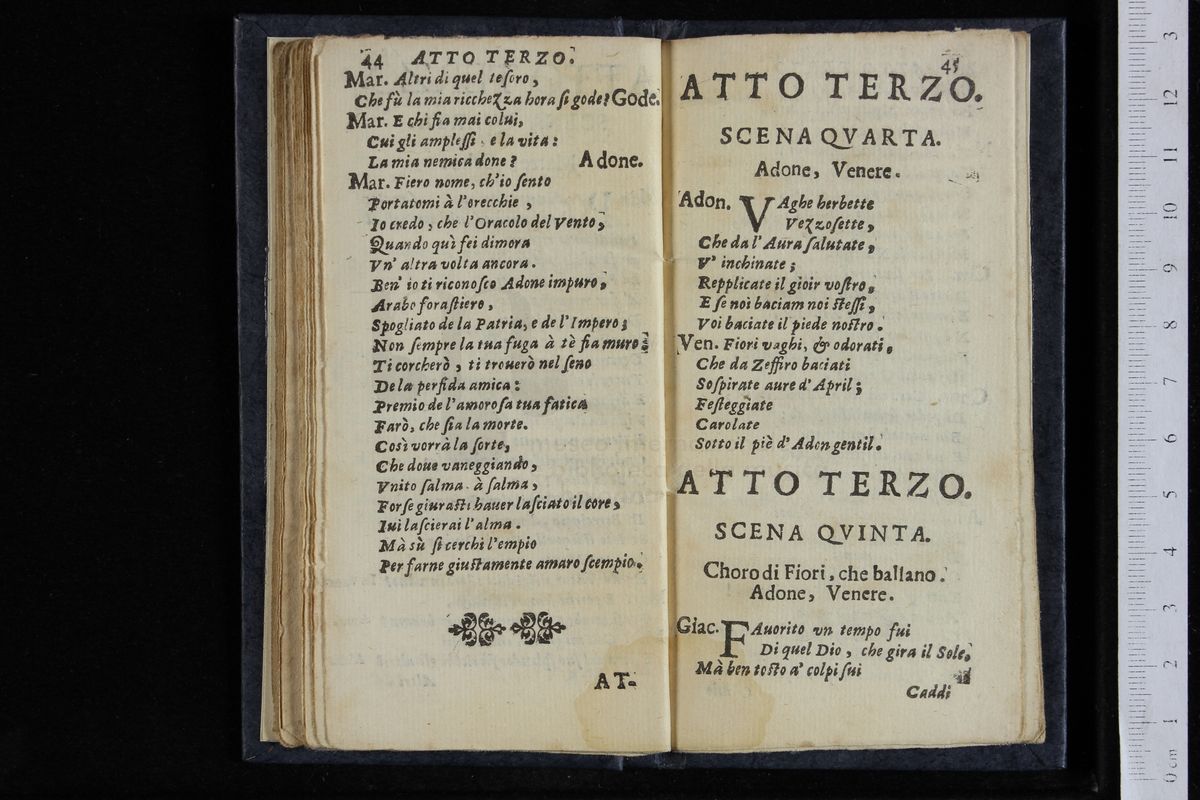 44 ATTO TERZO.
Mar. Altri di quel teſoro,
Che fù la mia ricchezza hora ſi gode? Gode.
Mar. E chi ſia mai colui,
Cui gli ampleſſi, e la vita:
La mia nemica done? Adone.
Mar. Fiero nome, ch'io ſento
Portatomi à l'orecchie,
Io credo, che l'Oracolo del Vento,
Quando quì fei dimora
Vn' altra volta ancora.
Ben' io ti riconoſco Adone impuro,
Arabo foraſtiero,
Spogliato de la Patria, e de l'Impero;
Non ſempre la tua fuga à tè fia muro:
Ti corcherò, ti trouerò nel ſeno
De la perfida amica:
Premio de l'amoroſa tua fatica
Farò, che ſia la morte.
Così vorrà la ſorte,
Che doue vaneggiando,
Vnito ſalma à ſalma,
Forſe giuraſti hauer laſciato il core,
Iui laſcierai l'alma.
Mà sù ſi cerchi l'empio
Per farne giuſtamente amaro ſcempio.
AT-
45
ATTO TERZO.
SCENA QVARTA.
Adone, Venere.
Adon. VAghe herbette
Vezzoſette,
Che da l'Aura ſalutate,
V' inchinate;
Repplicate il gioir voſtro,
E ſe noi baciam noi ſteſſi,
Voi baciate il piede noſtro.
Ven. Fiori vaghi, & odorati,
Che da Zeffiro baciati
Soſpirate aure d'April;
Feſteggiate
Carolate
Sotto il piè d'Adon gentil.
ATTO TERZO.
SCENA QVINTA.
Choro di Fiori, che ballano.
Adone, Venere.
Giac. FAuorito vn tempo fui
Di quel Dio, che gira il Sole,
Mà ben toſto a' colpi ſui
Caddi
0 cm 1 2 3 4 5 6 7 8 9 10 11 12 3